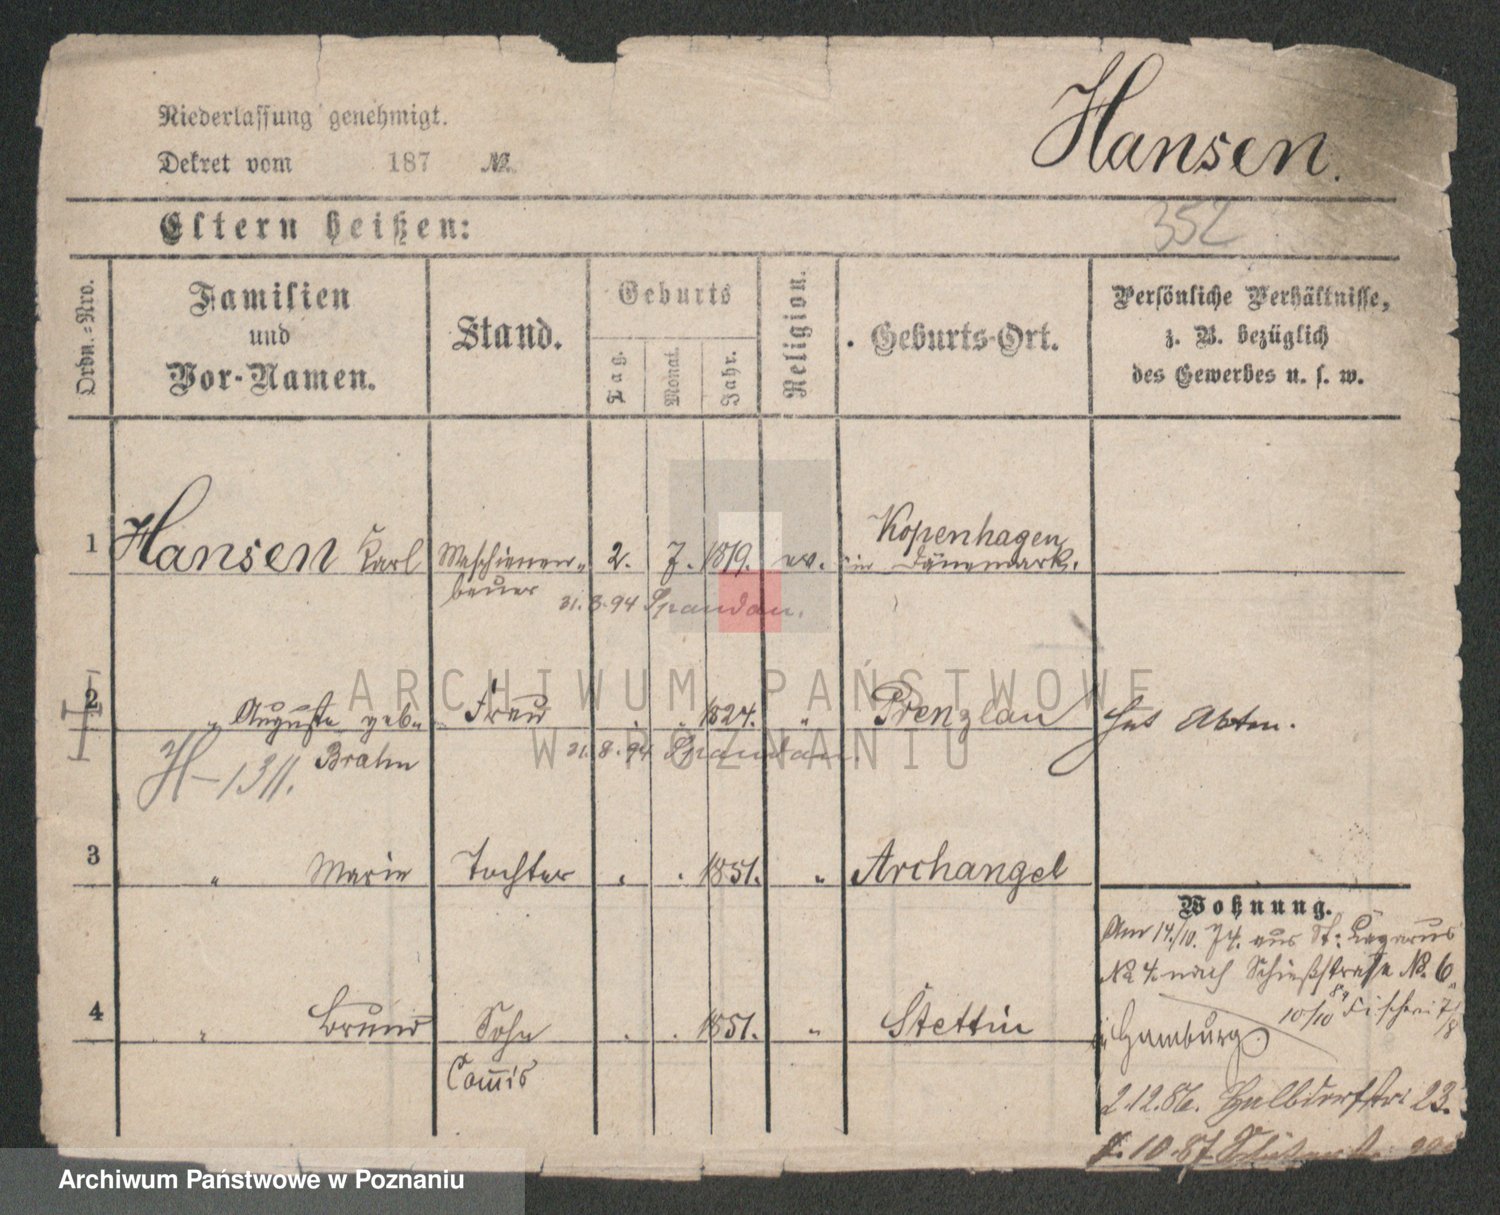 Niederlassung genehmigt.
Dekret vom 187 №.
Hansen.
352
Eltern heißen:
Ordn.=Nro.
Familien
und
Vor-Namen.
Stand.
Geburts
Tag.
Monat.
Jahr.
Religion.
Geburts-Ort.
Persönliche Verhältnisse,
z. B. bezüglich
des Gewerbes u. s. w.
1 Hansen Karl Maschienen- 2. 7. 1819. ev. Kopenhagen
bauer in Dänemark.
31. 8. 94 Spandau.
2 " Auguste geb. Frau 1824. " Prenzlau hat Akten.
Brahn
31. 8. 94 Spandau.
H-1311.
3 " Marie Tochter 1851. " Archangel
Wohnung.
Am 14./10. 74. aus St: Lazarus
№ 4. nach Schießstraße № 6.
10/10 89 Fischerei 7/8
in Hamburg.
4 " Bruno Sohn 1851. " Stettin
Comis
2.12.86. Halbdorfstr: 23.
10.87
ARCHIWUM PAŃSTWOWE
W POZNANIU
Archiwum Państwowe w Poznaniu